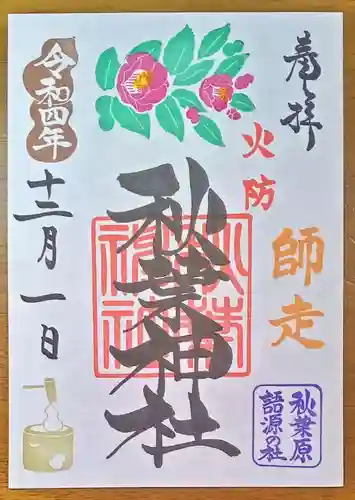 奉拝
火防
師走
秋葉原
語源の社
秋葉神社
令和四年
十二月一日